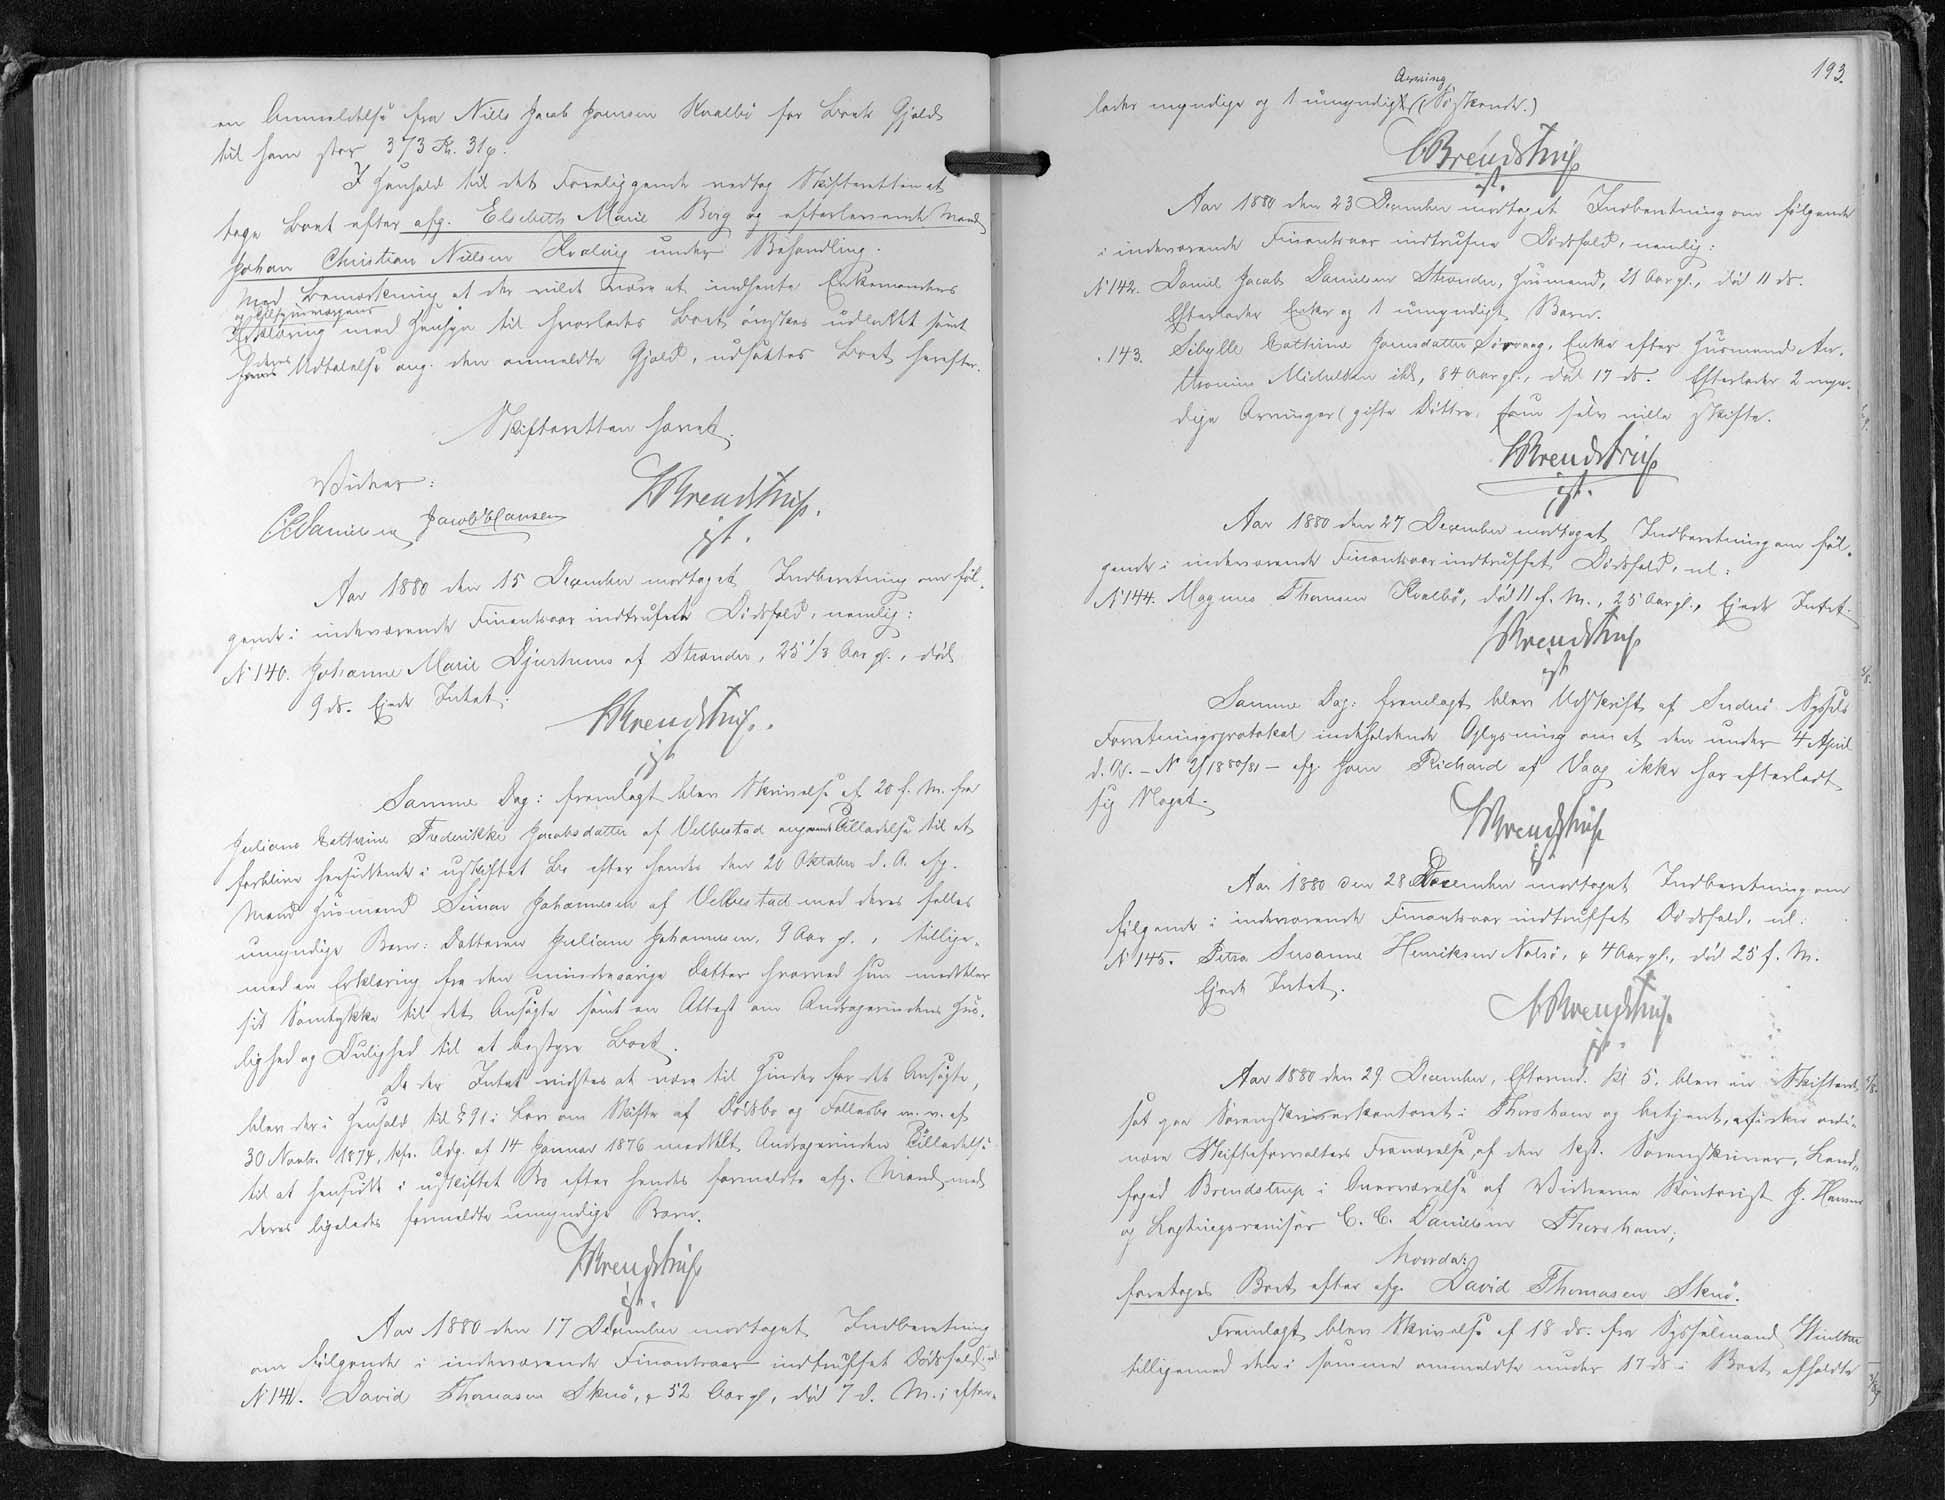 en Anmeldelse fra Niels Jacob Joensen Kvalbø for Boets Gjæld
til ham stor 373 Kr. 31 ø.
I Henhold til det Foreliggende vedtog Skifteretten at
tage Boet efter afg. Elsebeth Marie Berg og efterlevende Mand
Johan Christian Nielsen Hvalvig under Behandling.
Med Bemærkning at der vilde være at indhente Enkemandens
og Tilsynsværgens
Erklæring med Hensyn til hvorledes Boet ønskes udlukket samt
deres Udtalelse ang. den anmeldte Gjæld, udsattes Boet herefter.
Skifteretten hævet.
Vidner:
CC Danielsen Jacob Hansen
CBrendstrup.
cst.
Aar 1880 den 15 December modtaget Indberetning om føl-
gende i indeværende Finantsaar indtrufne Dødsfald, nemlig:
N 140. Johanne Marie Djurhuus af Strænder, 25 1/3 Aar gl., død
9 ds. Ejede Intet.
CBrendstrup.
cst
Samme Dag: fremlagt blev Skrivelse af 20 f. M. fra
Juliane Cathrine Frederikke Jacobsdatter af Velbestad ang. Tilladelse til at
forblive hensiddende i uskiftet Bo efter hendes den 20 Oktober d. A. afg.
Mand Husmand Simon Johannesen af Velbestad med deres fælles
umyndige Barn: Datteren Juliane Johannesen, 9 Aar gl., tillige-
med en Erklæring fra den mindreaarige Datter hvorved hun meddeler
sit Samtykke til det Ansøgte samt en Attest om Andragerindens Hus-
lighed og Dulighed til at bestyre Boet.
Da der Intet vidstes at være til Hinder for det Ansøgte,
blev der i Henhold til § 91 i Lov om Skifte af Dødsbo og Fællesbo m. v. af
30 Novbr. 1874, kfr. Adg. af 14 Januar 1876 meddelt Andragerinden Tilladelse
til at hensidde i uskiftet Bo efter hendes formeldte afg. Mand med
deres ligeledes formeldte umyndige Barn.
CBrendstrup
cst.
Aar 1880 den 17 December modtaget Indberetning
om følgende i indeværende Finantsaar indtruffet Dødsfald: nl
N 141. David Thomasen Skuø, 52 Aar gl., død 7 d. M.; efter-
193.
Arving
lader myndige og 1 umyndig (Søskende.)
CBrendstrup
cst.
Aar 1880 den 23 December modtaget Indberetning om følgende
i indeværende Finantsaar indtrufne Dødsfald, nemlig:
N 142. Daniel Jacob Danielsen Strænder, Husmand, 21 Aar gl., død 11 ds.
Efterlader Enke og 1 umyndigt Barn.
. 143. Sibylle Cathrine Joensdatter Sørvaag, Enke efter Husmand An-
thonius Michelsen ibd., 84 Aar gl., død 17 ds. Efterlader 2 myn-
dige Arvinger (gifte Døttre, som selv ville skifte.
CBrendstrup
cst.
Aar 1880 den 27 December modtaget Indberetning om føl-
gende i indeværende Finantsaar indtruffet Dødsfald, nl:
N 144. Magnus Thomsen Kvalbø, død 11 f. M., 25 Aar gl., Ejede Intet.
CBrendstrup
cst
Samme Dag: fremlagt blev Udskrift af Suderø Syssels
Forretningsprotokol indeholdende Oplysning om at den under 4 April
d. A. - N 2/1880/81 - afg. Joen Richard af Vaag ikke har efterladt
sig Noget.
CBrendstrup
cst
Aar 1880 den 28 December modtaget Indberetning om
følgende i indeværende Finantsaar indtruffet Dødsfald, nl:
N 145. Petra Susanne Henriksen Nolsø, 4 Aar gl., død 25 f. M.
Ejede Intet.
CBrendstrup
cst.
Aar 1880 den 29. December, Eftermd. Kl 5. blev en Skifteret
sat paa Sørenskriverkontoret i Thorshavn og betjent, efter den ordi-
nære Skifteforvalters Fraværelse, af den kst. Sørenskriver, Land-
foged Brendstrup i Overværelse af Vidnerne Kontorist J. Hansen
og Lagtingsrevisor C. C. Danielsen Thorshavn,
hvorda:
foretoges Boet efter afg. David Thomasen Skuø.
Fremlagt blev Skrivelse af 18 ds. fra Sysselmand Winther
tilligemed den i samme ommeldte under 17 ds i Boet afholdte